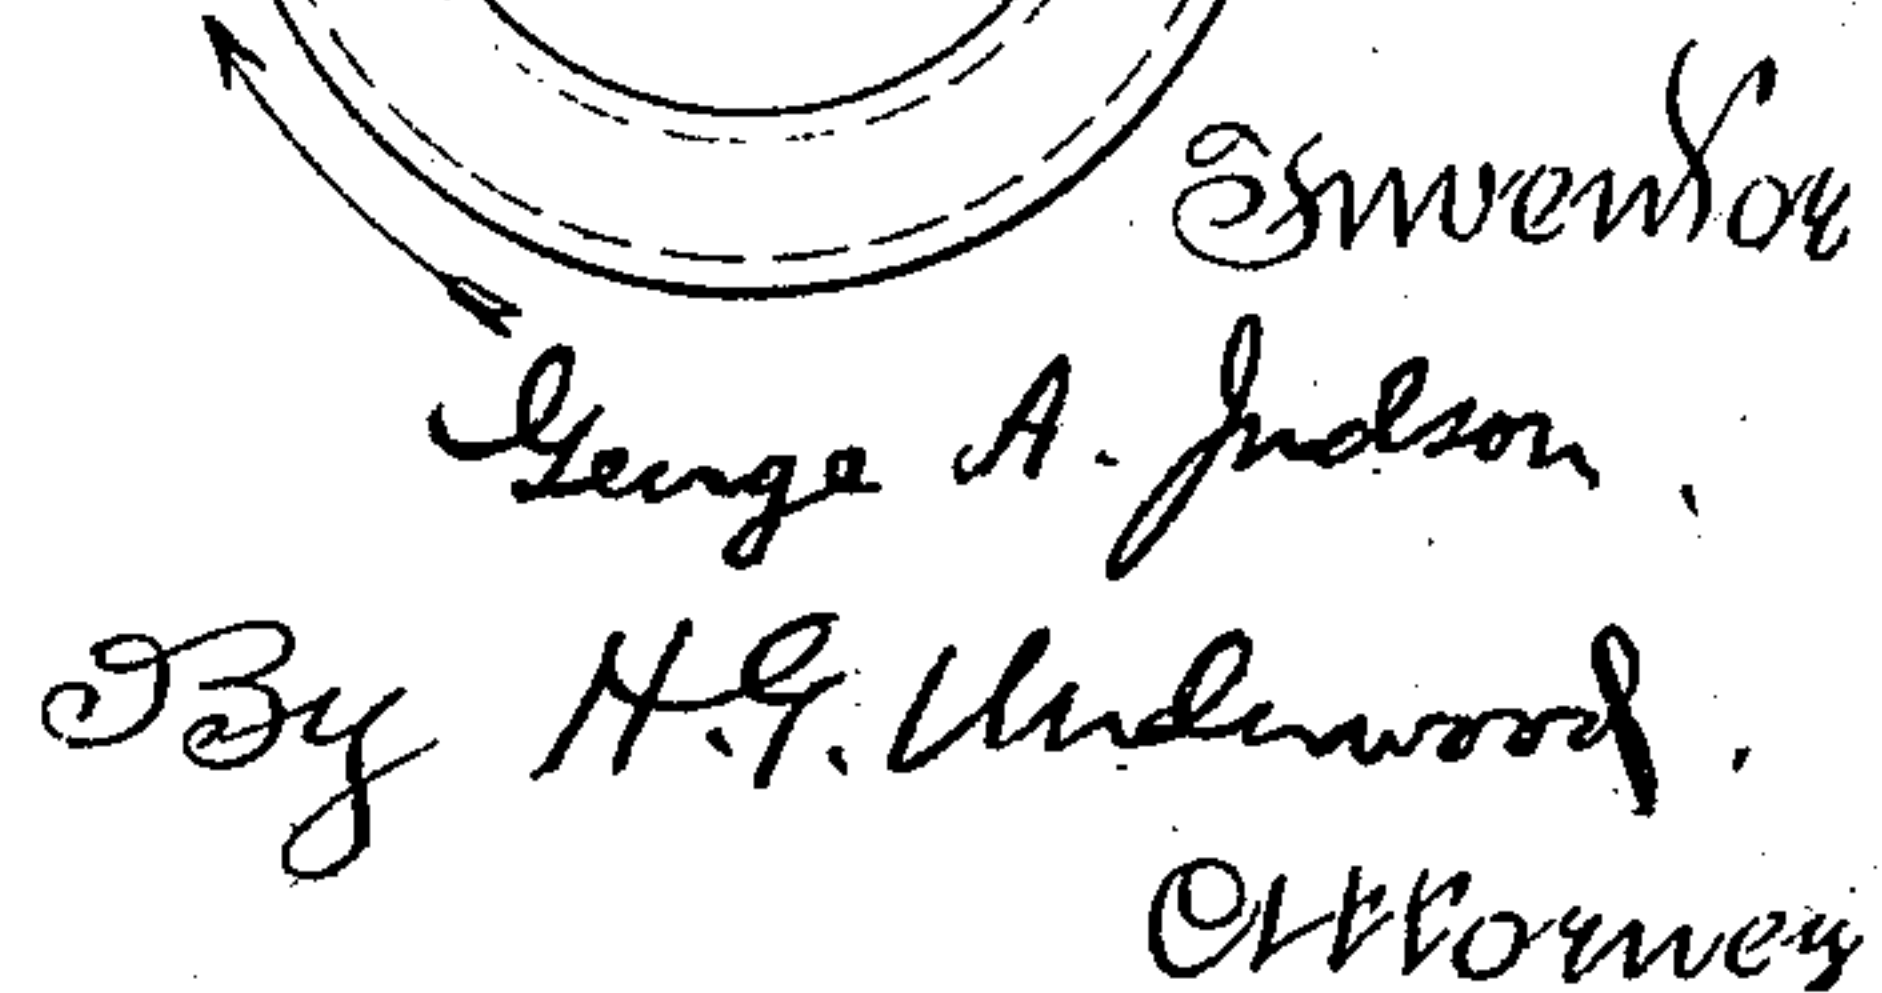 Inventor
George A. Judson.
By H. G. Underwood.
Attorney